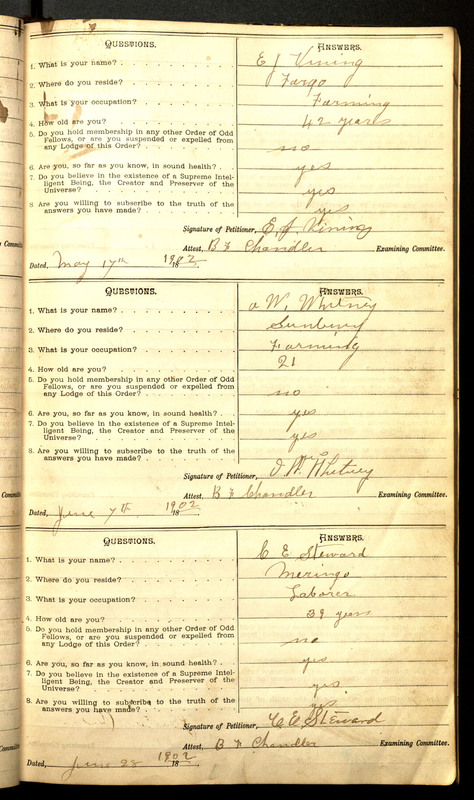 QUESTIONS. ANSWERS.
1. What is your name? E J Vining
2. Where do you reside? Fargo
3. What is your occupation? Farming
4. How old are you? 42 years
5. Do you hold membership in any other Order of Odd
Fellows, or are you suspended or expelled from
any Lodge of this Order? no
6. Are you, so far as you know, in sound health? yes
7. Do you believe in the existence of a Supreme Intel-
ligent Being, the Creator and Preserver of the
Universe? yes
8. Are you willing to subscribe to the truth of the
answers you have made? yes
Signature of Petitioner, E. J. Vining
Attest, B F Chandler Examining Committee.
Dated, May 17th 1902
QUESTIONS. ANSWERS.
1. What is your name? W. Whitney
2. Where do you reside? Sunbury
3. What is your occupation? Farming
4. How old are you? 21
5. Do you hold membership in any other Order of Odd
Fellows, or are you suspended or expelled from
any Lodge of this Order? no
6. Are you, so far as you know, in sound health? yes
7. Do you believe in the existence of a Supreme Intel-
ligent Being, the Creator and Preserver of the
Universe? yes
8. Are you willing to subscribe to the truth of the
answers you have made? yes
Signature of Petitioner, W. Whitney
Attest, B F Chandler Examining Committee.
Dated, June 7th 1902
QUESTIONS. ANSWERS.
1. What is your name? C E Steward
2. Where do you reside? Maringo
3. What is your occupation? Laborer
4. How old are you? 39 years
5. Do you hold membership in any other Order of Odd
Fellows, or are you suspended or expelled from
any Lodge of this Order? no
6. Are you, so far as you know, in sound health? yes
7. Do you believe in the existence of a Supreme Intel-
ligent Being, the Creator and Preserver of the
Universe? yes
8. Are you willing to subscribe to the truth of the
answers you have made? yes
Signature of Petitioner, C E Steward
Attest, B F Chandler Examining Committee.
Dated, June 28 1902